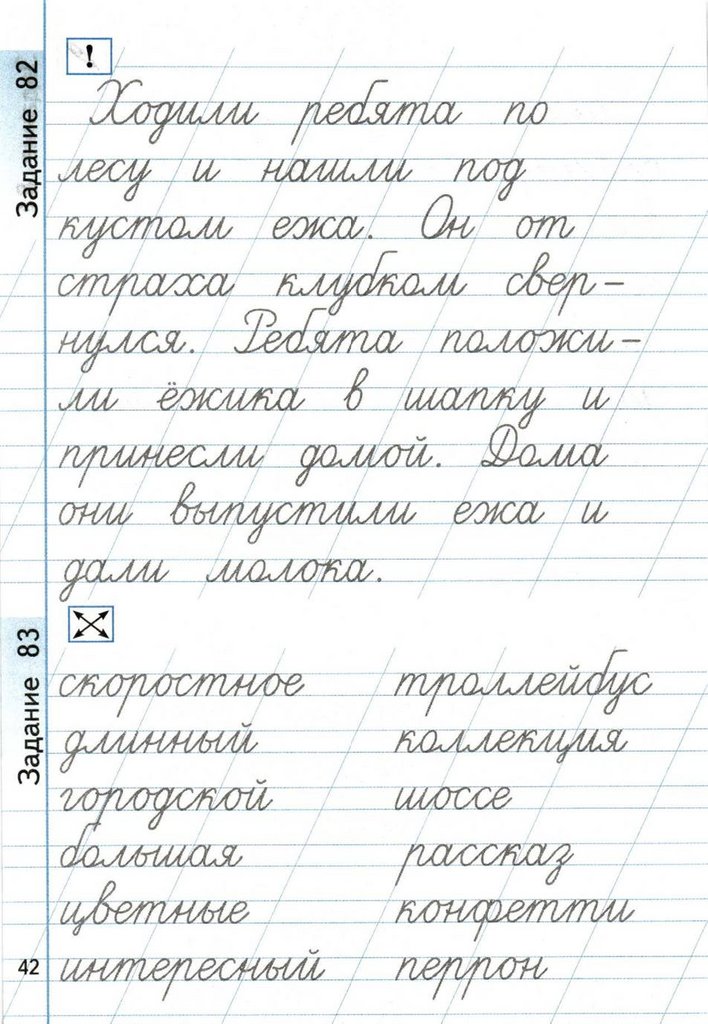 Задание 82
!
Ходили ребята по
лесу и нашли под
кустом ежа. Он от
страха клубком свер-
нулся. Ребята положи-
ли ёжика в шапку и
принесли домой. Дома
они выпустили ежа и
дали молока.
Задание 83
скоростное троллейбус
длинный коллекция
городской шоссе
большая рассказ
цветные конфетти
интересный перрон
42